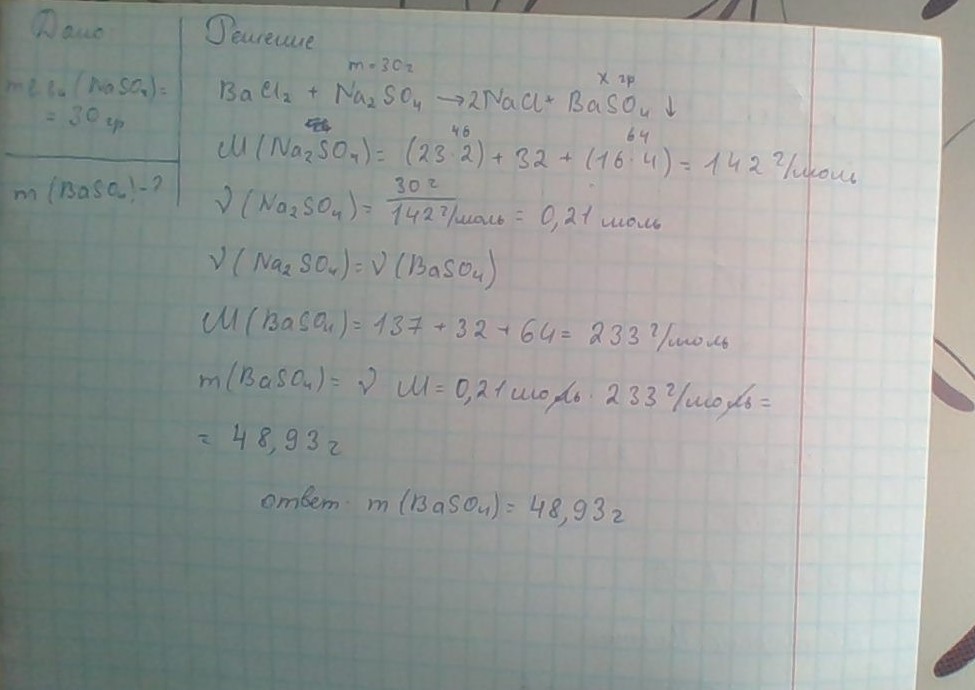 Дано
m в-ва (NaSO₄) =
= 30 гр
m (BaSO₄) - ?
Решение
m = 30 г
x гр
BaCl₂ + Na₂SO₄ → 2NaCl + BaSO₄ ↓
46
64
M (Na₂SO₄) = (23·2) + 32 + (16·4) = 142 г/моль
ν (Na₂SO₄) = 30 г / 142 г/моль = 0,21 моль
ν (Na₂SO₄) = ν (BaSO₄)
M (BaSO₄) = 137 + 32 + 64 = 233 г/моль
m (BaSO₄) = ν M = 0,21 моль · 233 г/моль =
= 48,93 г
ответ· m (BaSO₄) = 48,93 г